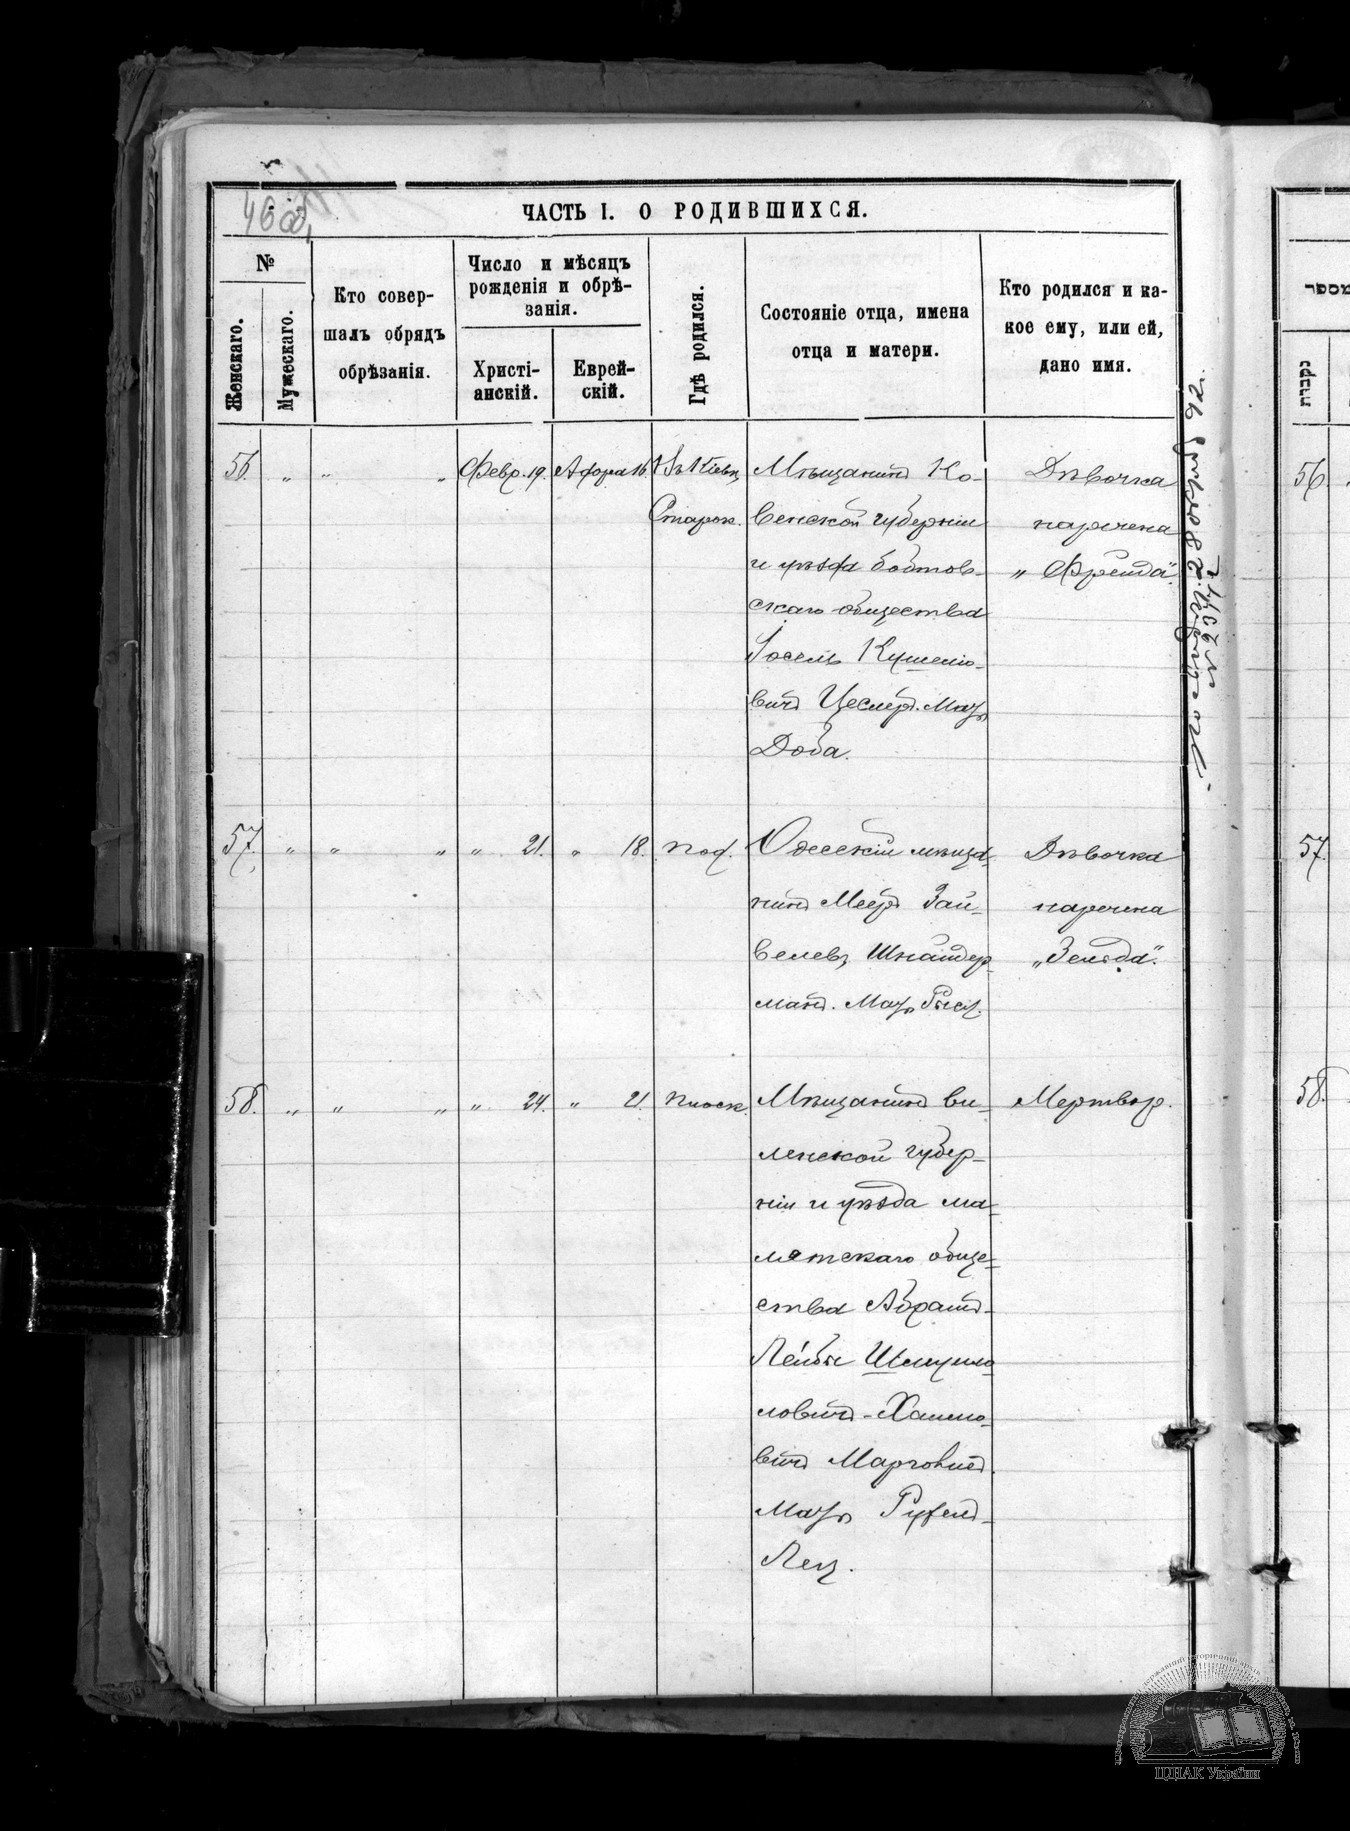 46 об,
ЧАСТЬ I. О РОДИВШИХСЯ.
№
Женскаго.
Мужескаго.
Кто совер-
шалъ обрядъ
обрѣзанія.
Число и мѣсяцъ
рожденія и обрѣ-
занія.
Христі-
анскій.
Еврей-
скій.
Гдѣ родился.
Состояніе отца, имена
отца и матери.
Кто родился и ка-
кое ему, или ей,
дано имя.
56. „ „ „ Февр. 19. Адора 16. Въ Кіевѣ
Старок.
Мѣщанинъ Ко-
венской губерніи
и уѣзда
скаго общества
Іосель
вичъ Цеслеръ. Мать
Доба.
Дѣвочка
наречена
„Фрейда“.
57. „ „ „ „ 21. „ 18. Под.
Одесскій мѣща-
нинъ Мееръ Зай-
велевъ Шнайдер-
манъ. Мать Рися.
Дѣвочка
наречена
„Зельда“.
58. „ „ „ „ 24. „ 21. Плоск.
Мѣщанинъ ви-
ленской губер-
ніи и уѣзда ма-
лятскаго обще-
ства Абрамъ-
Лейба Шмуйло-
ловичъ-Хаимо-
вичъ
Мать
Лея.
Мертвор.
מספר
נקבות
56.
57.
58.
ЦДІАК України